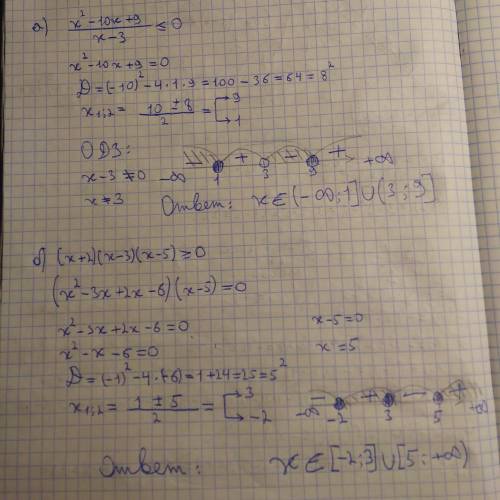 а) (x² - 10x + 9)/(x - 3) ≤ 0
x² - 10x + 9 = 0
D = (-10)² - 4·1·9 = 100 - 36 = 64 = 8²
x₁;₂ = (10 ± 8)/2 = 9 1
ОДЗ:
x - 3 ≠ 0 -∞ + 1 3 9 + +∞
x ≠ 3 Ответ: x ∈ (-∞; 1] ∪ (3; 9]
б) (x+2)(x-3)(x-5) ≥ 0
(x² - 3x + 2x - 6)(x-5) = 0
x² - 3x + 2x - 6 = 0 x - 5 = 0
x² - x - 6 = 0 x = 5
D = (-1)² - 4·(-6) = 1 + 24 = 25 = 5²
x₁;₂ = (1 ± 5)/2 = 3 -2 -∞ - -2 + 3 - 5 + +∞
Ответ: x ∈ [-2; 3] ∪ [5; +∞)